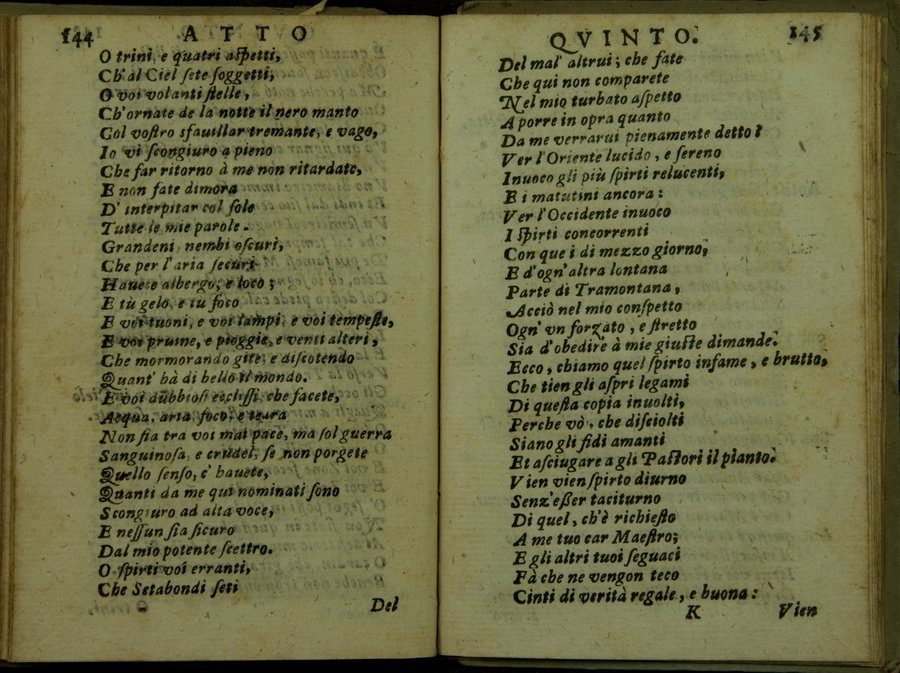 144 ATTO
O trini, e quatri aſpetti,
Ch'al Ciel ſete ſoggetti,
O voi volanti ſtelle,
Ch'ornate de la notte il nero manto
Col voſtro sfauillar tremante, e vago,
Io vi ſcongiuro a pieno
Che far ritorno à me non ritardate,
E non fate dimora
D'interpitar col ſole
Tutte le mie parole.
Grandeni, nembi oſcuri,
Che per l'aria ſecuri
Hauete albergo, e loco;
E tù gelo, e tu foco
E voi tuoni, e voi lampi, e voi tempeſte,
E voi pruine, e pioggie, e venti alteri,
Che mormorando gite, e diſcotendo
Quant' hà di bello il mondo.
E voi dubbioſi eccliſſi, che facete,
Acqua, aria, foco, e terra
Non ſia tra voi mai pace, ma ſol guerra
Sanguinoſa, e crudel, ſe non porgete
Quello ſenſo, c' hauete,
Quanti da me qui nominati ſono
Scongiuro ad alta voce,
E neſſun ſia ſicuro
Dal mio potente ſcettro.
O ſpirti voi erranti,
Che Setabondi ſeti
Del
QVINTO. 145
Del mal' altrui; che fate
Che qui non comparete
Nel mio turbato aſpetto
A porre in opra quanto
Da me verrarui pienamente detto?
Ver l'Oriente lucido, e ſereno
Inuoco gli più ſpirti relucenti,
E i matutini ancora:
Ver l'Occidente inuoco
I ſpirti concorrenti
Con que i di mezzo giorno,
E d'ogn'altra lontana
Parte di Tramontana,
Acciò nel mio conſpetto
Ogn' vn forzato, e ſtretto
Sia d'obedire à mie giuſte dimande.
Ecco, chiamo quel ſpirto infame, e brutto,
Che tien gli aſpri legami
Di queſta copia inuolti,
Perche vò, che diſciolti
Siano gli fidi amanti
Et aſciugare a gli Paſtori il pianto.
Vien vien ſpirto diurno
Senz'eßer taciturno
Di quel, ch'è richieſto
A me tuo car Maeſtro;
E gli altri tuoi ſeguaci
Fà che ne vengon teco
Cinti di verità regale, e buona:
K Vien